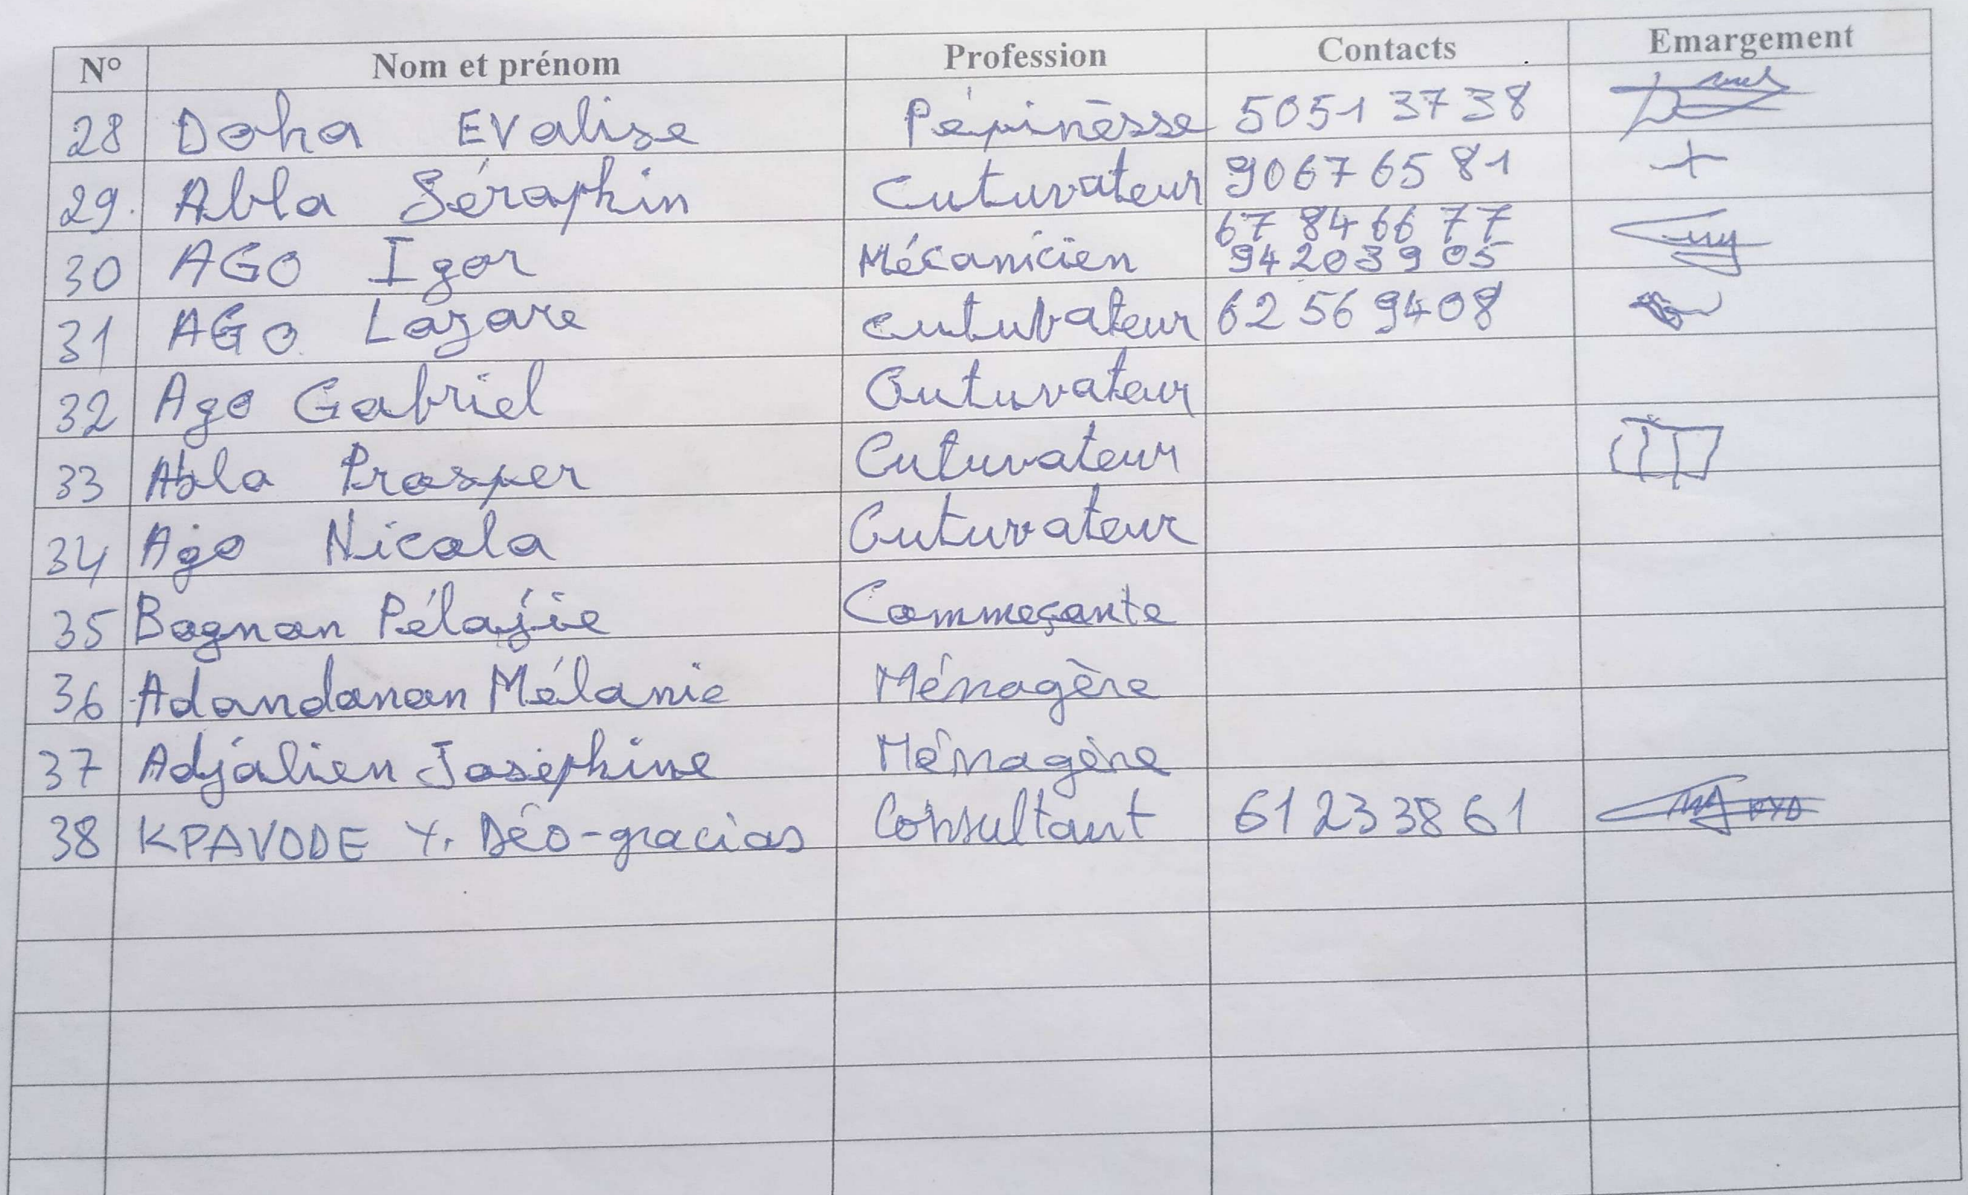 N° Nom et prénom Profession Contacts Emargement
28 Doha EValise Pépinèsse 5051 3738
29. Abla Séraphin Cutuvateur 90676581
30 AGO Igor Mécanicien 67 84 66 77
94203905
31 AGO Lazare cutuvateur 62 56 9408
32 Ago Gabriel Cutuvateur
33 Abla Prosper Cutuvateur
34 Ago Nicola Cutuvateur
35 Bagnan Pélajie Commeçante
36 Adandanan Mélanie Ménagère
37 Adjalien Joséphine Ménagère
38 KPAVODE Y. Déo-gracias Consultant 61233861